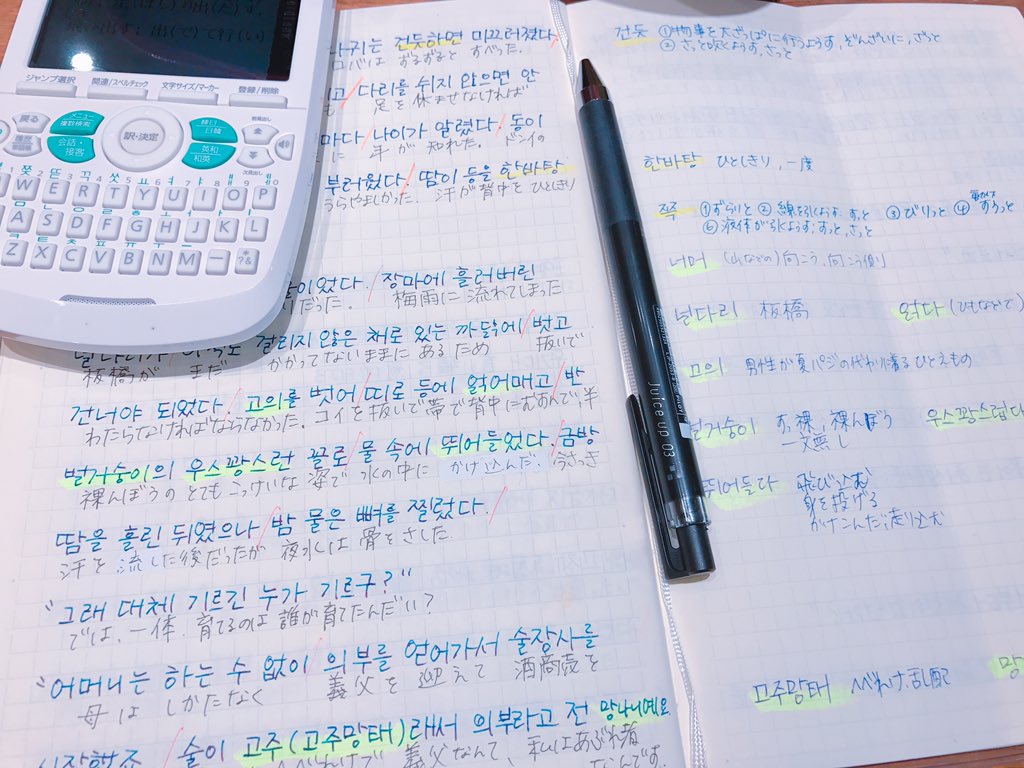 ジャンプ選択 関連/スペルチェック 文字サイズ/マーカー 登録/削除
戻る メニュー 複数検索 訳・決定 韓日 日韓 全
会話・接客 英和 和英
W E R T Y U I O P
A S D F G H J K L
Z X C V B N M
나귀는 건듯하면 미끄러졌다
ロバは ずるずると すべった.
다리를 쉬지 않으면 안
足を休ませなければ
마다/나이가 알렸다/동이
に 年が 知れた. ドンイの
부러웠다/땀이 등을 한바탕
うらやましかった. 汗が背中を ひとしきり
이었다/장마에 흘러버린
だった. 梅雨に流れてしまった
널다리가 아직도 걸리지 않은 채로 있는 까닭에/벗고
板橋が まだ かかってないままにあるため 抜いで
건너야 되었다/고의를 벗어/띠로 등에 얽어매고/반
わたらなければならなかった. コイを抜いで帯で背中にむすんで, 半
벌거숭이의 우스꽝스런 꼴로/물 속에 뛰어들었다/금방
裸んぼうの とてもこっけいな 姿で 水の中に かけ込んだ. 今さっき
땀을 흘린 뒤였으나/밤 물은 뼈를 찔렀다/
汗を 流した後だったが 夜水は 骨をさした.
"그래 대체 기르긴 누가 기르구?"
では、一体、育てるのは 誰が育てたんだい?
"어머니는 하는 수 없이/의부를 얻어가서 술장사를
母は しかたなく 義父を 迎えて 酒商売を
시작했죠/술이 고주(고주망태)래서 의부라고 전 망나니예요
義父なんて、私はあぶれ者なんです.
건듯 ①物事を大ざっぱに行うようす, ぞんざいに, ざっと
②さっと吹くようす, さっと
한바탕 ひとしきり, 一度
쭉 ①ずらりと ②線を引くようす. すっと ③びりっと ④ずるっと
⑥液体が引くようす. すっと, さっと
너머 (山などの)向こう, 向こう側
널다리 板橋 얽다
고의 男性が夏パジの代わりに着るひとえもの
벌거숭이 お裸, 裸んぼう 우스꽝스럽다
一文無し
뛰어들다 飛び込む
身を投げる
かけこんだ, 走り込む
고주망태 べべれけ, 乱酔 망
Juice up 03